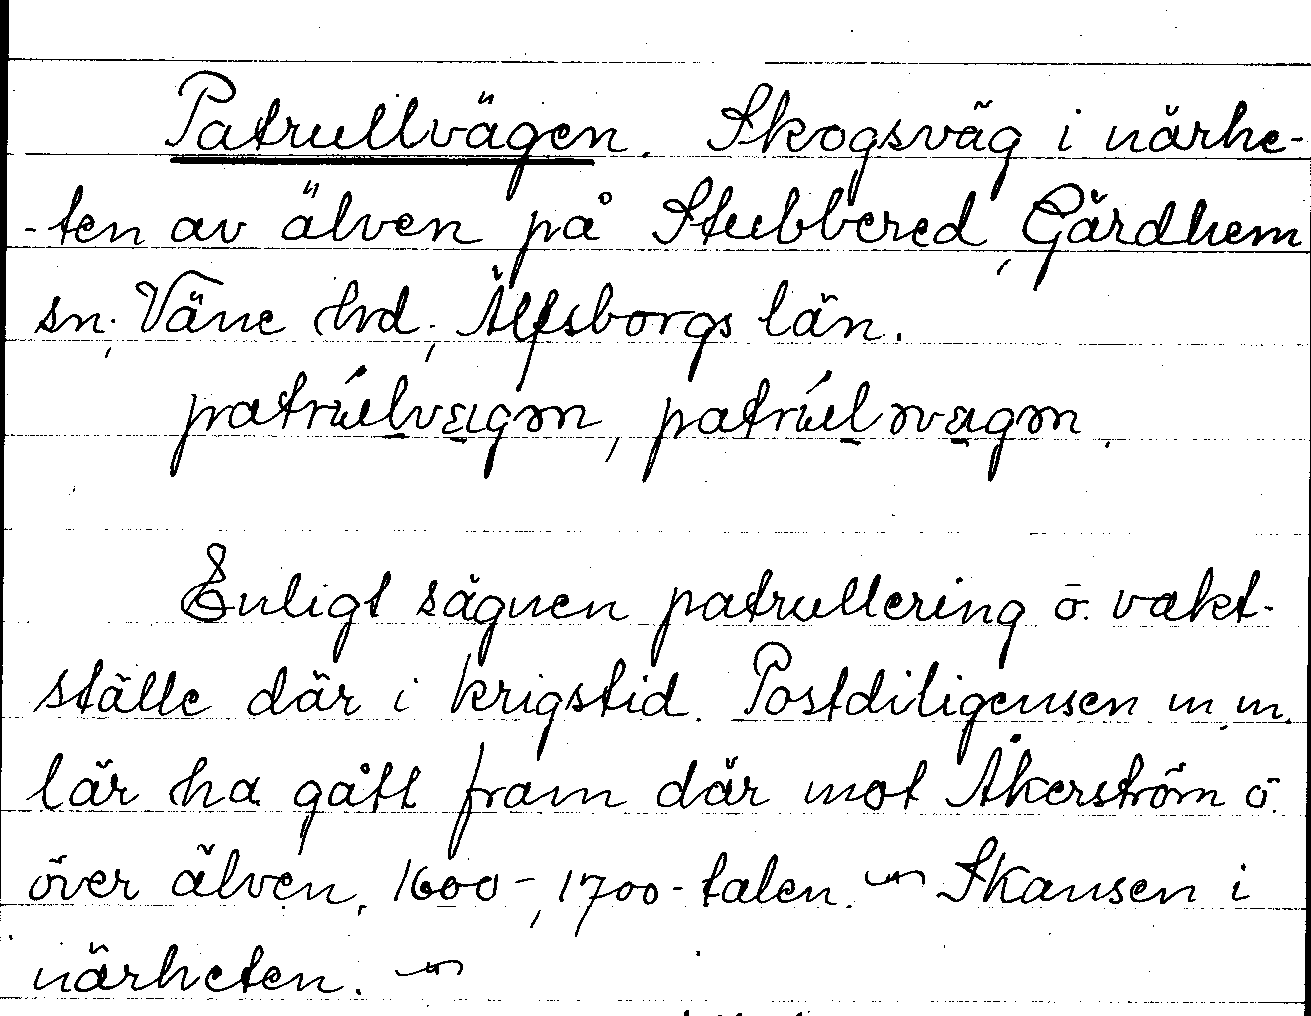 Patrullvägen. Skogsväg i närhe-
-ten av älven på Stubbered, Gärdhem
sn, Väne hd, Älfsborgs län.
Enligt sägnen patrullering o. vakt-
ställe där i krigstid. Postdiligensen m.m.
lär ha gått fram där mot Åkerström o.
över älven, 1600-, 1700-talen. Skansen i
närheten.